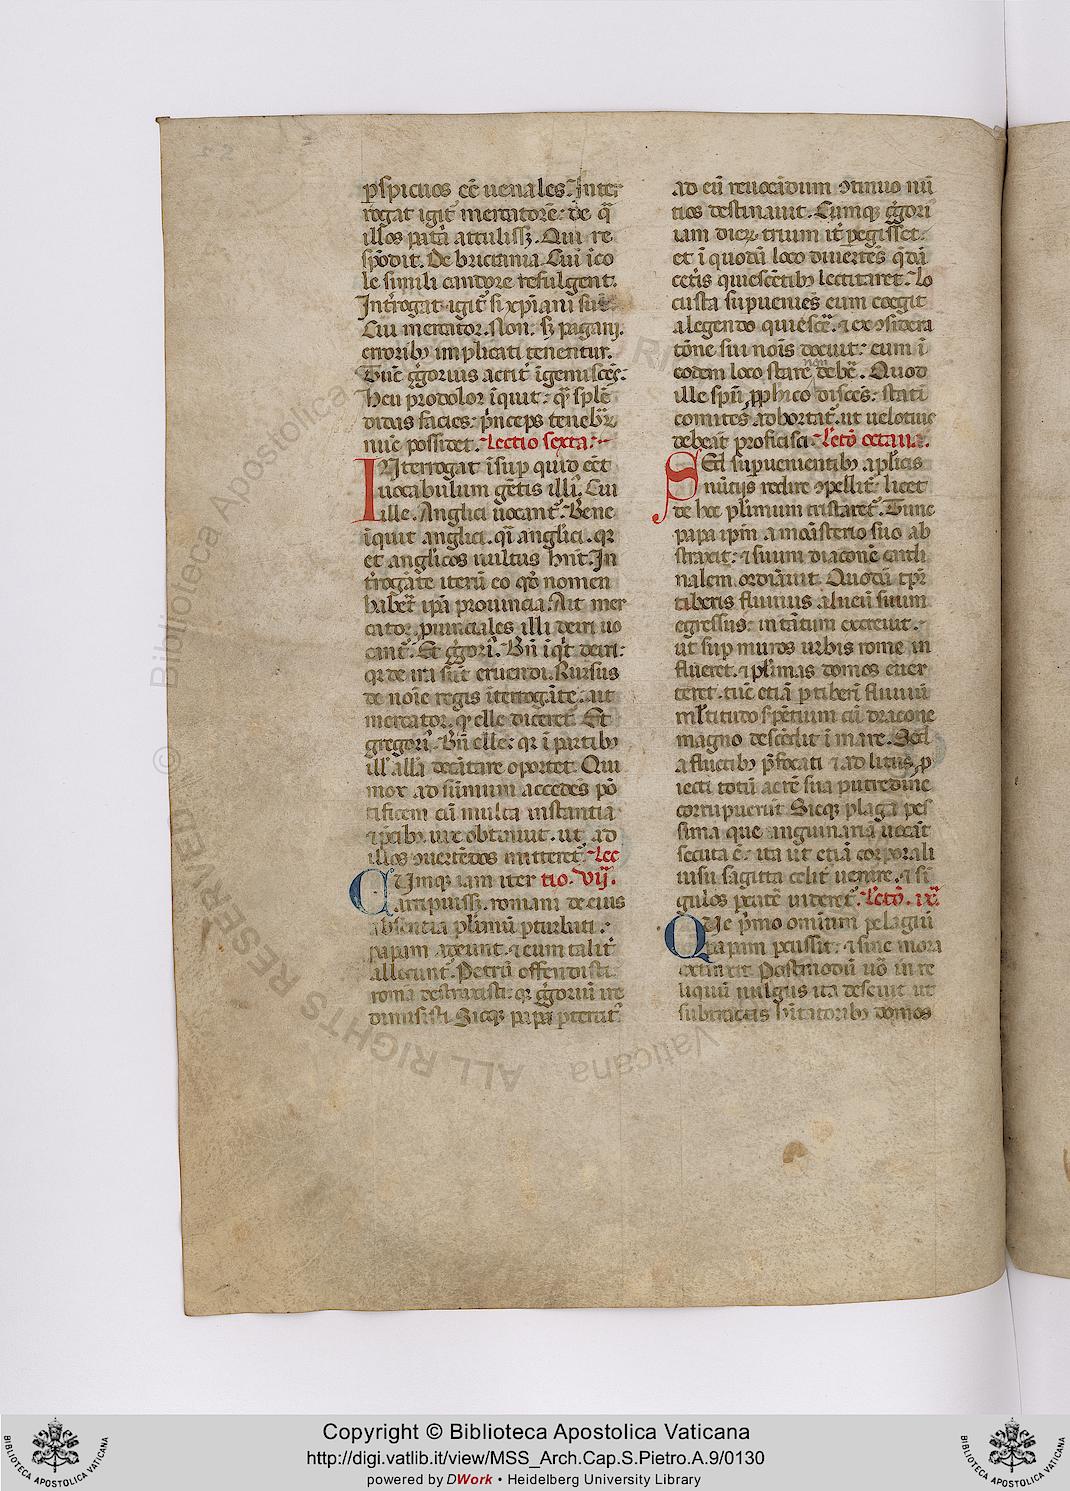 ꝑspicuos eē̄ uenales. Inter
rogat igit᷑ mercatorē: de q̄
illos pat̄a attuliss̄ꝫ. Qui re
spōdit. De brictannia. Cui īco
le simili candore refulgent.
Int̄rogat igit᷑ si xp̄iani sūt.
Cui mercator. Non. sꝫ paganis
erroribꝰ implicati tenentur.
Tūc gḡorius acrit᷑ īgemiscēs:
Heu prodolor īquit: qᷓ splē
didas facies: p̄nceps tenebrꝝ
nūc possidet. Lectio sexta.
INterrogat īsuꝑ quid eēt
uocabulum gētis illiꝰ. Cui
ille. Anglici uocant᷑. Bene
īquit anglici. qᷓi anglici. qꝛ
et anglicos uultus hn̄t. In
t̄rogāte iterū eo qd̄ nomen
haberꝫ ip̄a prouincia. Ait mer
cator. ꝓuinciales illi deiri uo
cant᷑. Et gḡoriꝰ. Bn̄ īqͥt deiri:
qꝛ de ira sūt eruendi. Rursus
de noīe regis īterrogāte: ait
mercator. qꝫ elle diceret᷑. Et
gregoriꝰ. Bn̄ elle: qꝛ ī partibꝰ
ill᷑ all'a decātare oportet. Qui
mox ad sūmum accedēs pō
tificem cū multa instantia
⁊ p̄cibꝰ uix obtinuit. ut ad
illos ꝯuertēdos mitteret᷑. Lec
CUmqꝫ iam iter tio. vij.
arripuissꝫ. romani de eius
absentia pl̄imū ꝑturbati.
papam adeunt. ⁊ eum talit᷑
allocunt᷑. Petrū offendisti.
romā destruxisti: qꝛ gḡoriū ire
dimisisti. Sicqꝫ papa ꝑterrit᷑
ad eū reuocādum ꝯtinuo nū
tios destinauit. Cumqꝫ gḡori
iam dierꝫ trium it᷑ ꝑegisset:
et ī quodā loco diuertēs qͥdā
cet̄is quiescētibꝰ lectitaret. Lo
custa suꝑueniēs eum coegit
a legendo quiesc̄e. ⁊ ex ꝯsidera
tōne sui noīs docuit: eum ī
eodem loco stare non deb̄e. Quod
ille spū ꝓphīco discēs: stati
comites adhortat᷑. ut uelotius
debeāt proficisci. Lect̄o octaua.
SEd suꝑuenientibꝰ aplicis
nūtijs redire ꝯpellit᷑: licet
de hoc pl̄imum tristaret᷑. Tunc
papa ip̄m a monāsterio suo ab
straxit: ⁊ suum diaconē cardi
nalem ordīauit. Quodā tp̄r
tiberis fluuius alueū suum
egressus: in tātum excreuit.
ut suꝑ muros urbis rome in
flueret. ⁊ pl̄imas domos euer
teret. tūc etiā ꝑ tiberī fluuiū
ml̄titudo sꝑētium cū dracone
magno descēdit ī mare. Sed
a fluctibꝰ p̄focati ⁊ ad litus ꝓ
iecti totū aerē sua putredine
corrupuerūt. Sicqꝫ plaga pes
sima que anguinariā uocāt
secuta ē: ita ut etiā corporali
uisu sagitta celit᷑ uenire. ⁊ sī
gulos ꝑcutē uiderēt᷑. Lect̄o. ix.
QUe p̄mo omnium pelagiū
papam ꝑcussit: ⁊ sine mora
extinxit. Postmodū uō in re
liquū uulgus ita deseuit. ut
subtractis hītatoribꝰ domos
© Biblioteca Apostolica Vaticana
ALL RIGHTS RESERVED
Copyright © Biblioteca Apostolica Vaticana
http://digi.vatlib.it/view/MSS_Arch.Cap.S.Pietro.A.9/0130
powered by DWork • Heidelberg University Library
BIBLIOTECA APOSTOLICA VATICANA
BIBLIOTECA APOSTOLICA VATICANA